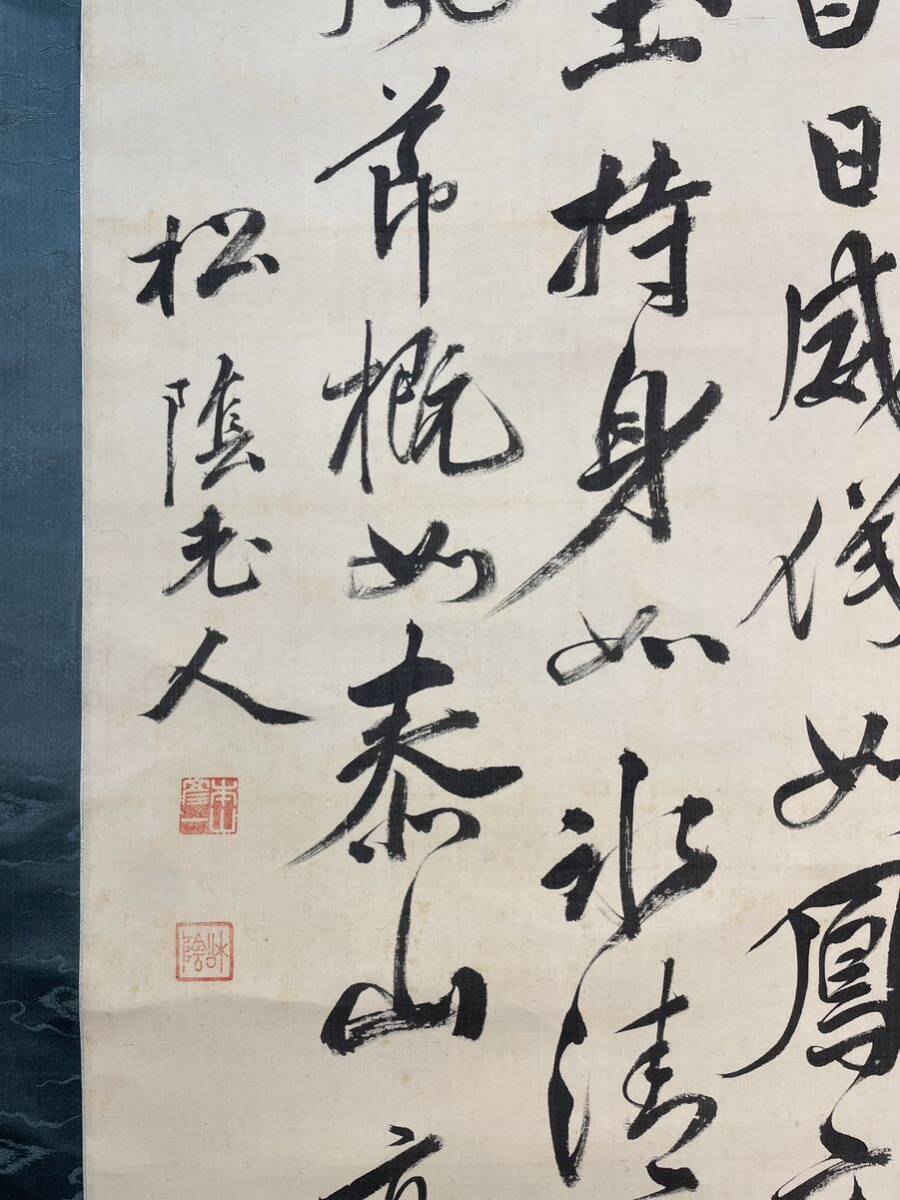 日威儀如鳳
持身如氷清
節概如泰山高
松陰老人
松陰